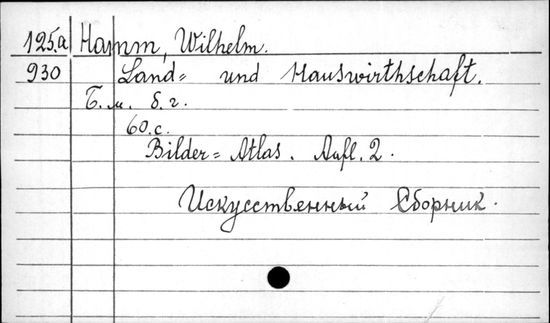 125.a Hamm, Wilhelm.
930 Land= und Hauswirthschaft.
Б. м. б. г.
60.с.
Bilder=Atlas. Aufl. 2.
Искусственный Сборник.